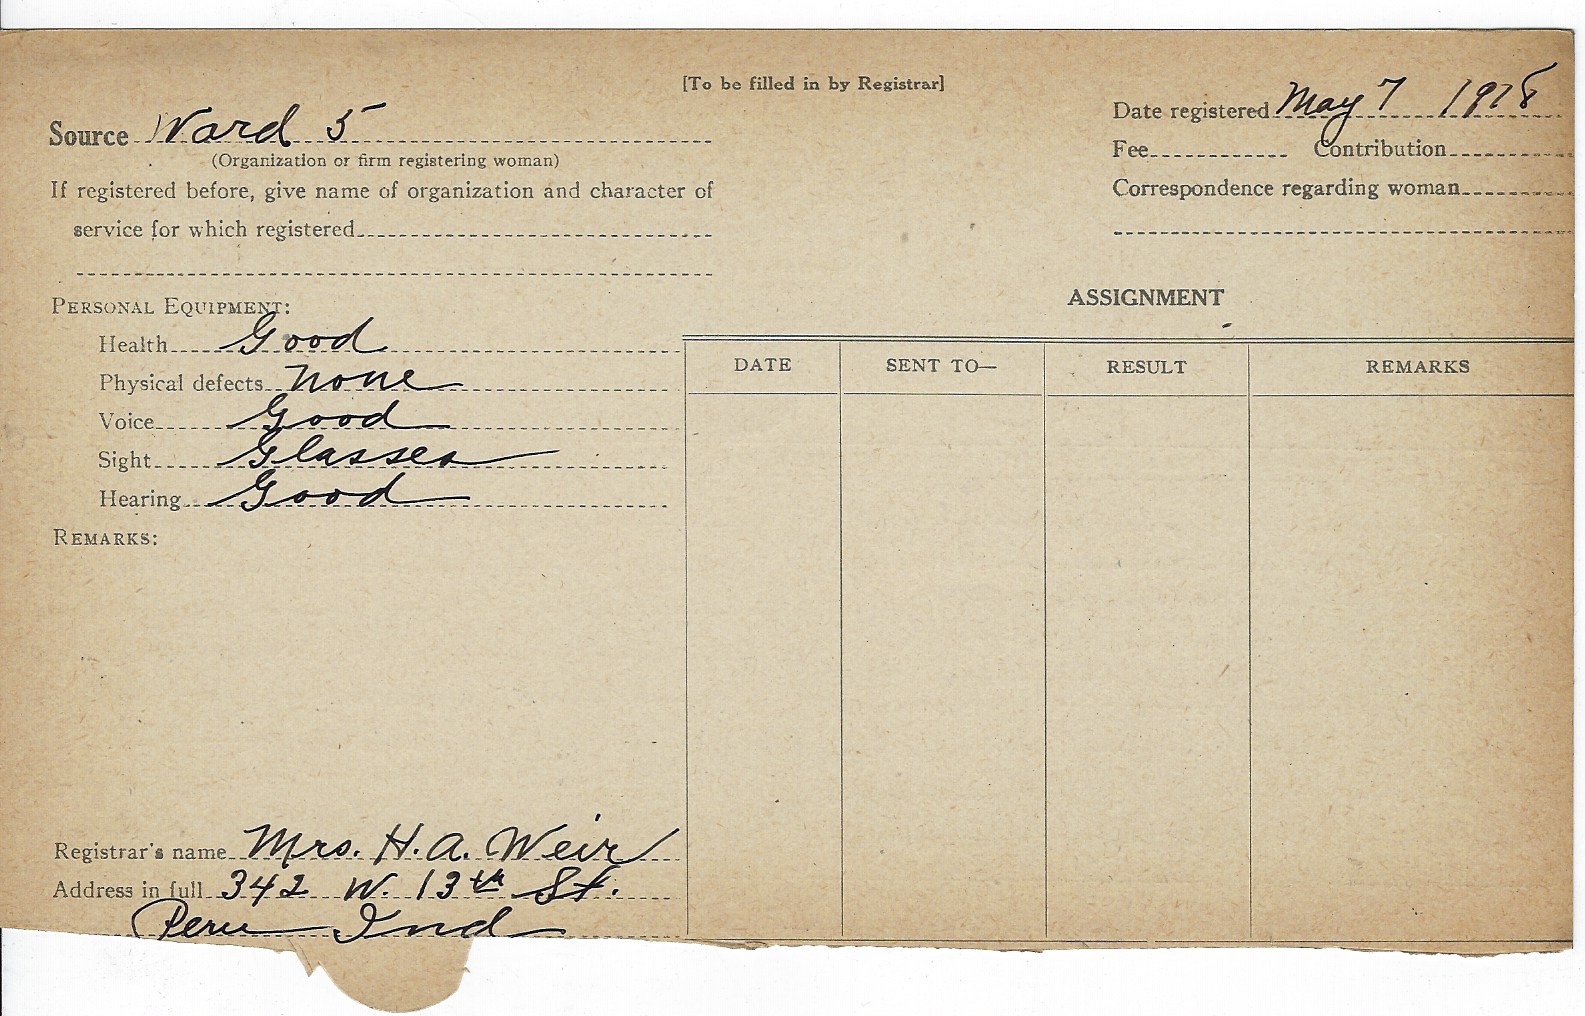 [To be filled in by Registrar]
Source Ward 5
(Organization or firm registering woman)
If registered before, give name of organization and character of
service for which registered
Date registered May 7 1918
Fee Contribution
Correspondence regarding woman
PERSONAL EQUIPMENT:
Health Good
Physical defects none
Voice Good
Sight Glasses
Hearing Good
REMARKS:
ASSIGNMENT
DATE SENT TO— RESULT REMARKS
Registrar's name Mrs. H. A. Weir
Address in full 342 W. 13th St.
Peru Ind